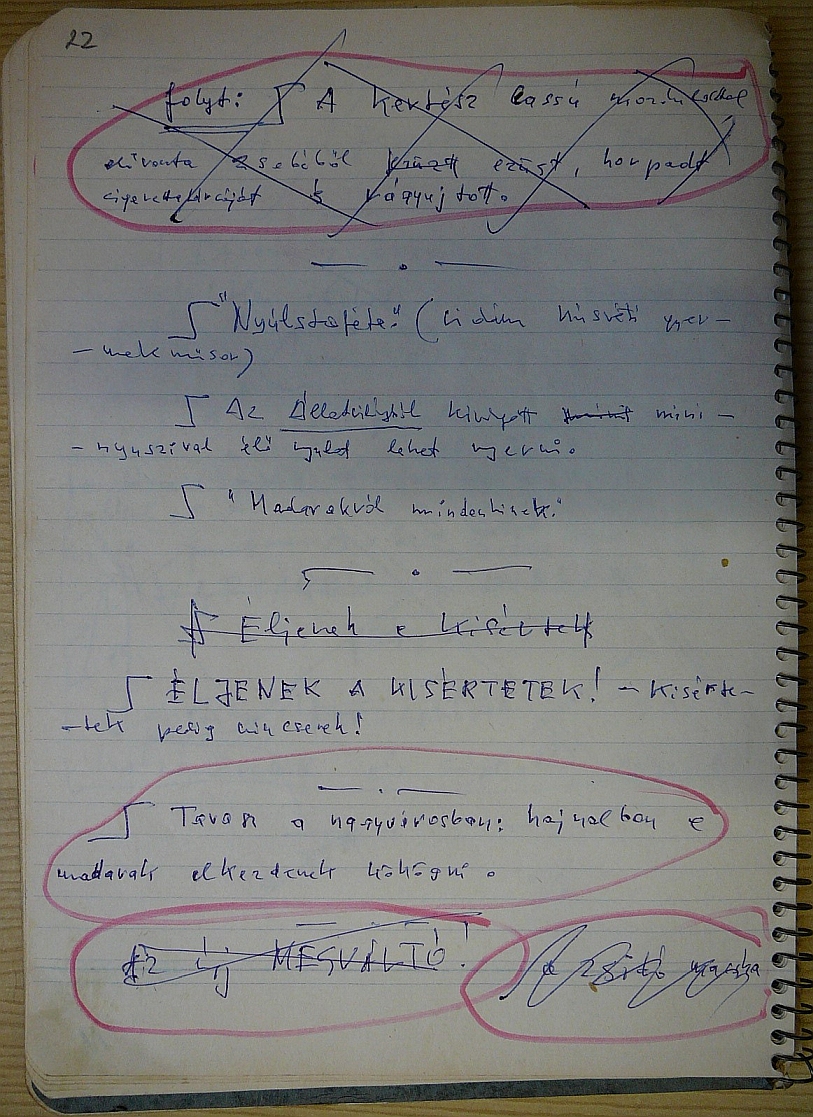 22
folyt: A kertész lassú mozdulattal
elővonta zsebéből ezüst, horpadt
cigarettatárcáját és rágyujtott.
"Nyúlstaféta." ( húsvéti gyer-
-mekműsor)
Az mini-
-nyuszival élő nyulat lehet nyerni.
"Madarakról mindenkinek."
Éljenek a kisértetek
ÉLJENEK A KISÉRTETEK! - Kisérte-
-tek pedig nincsenek!
Tavasz a nagyvárosban: hajnalban a
madarak elkezdenek köhögni.
Az új MEGVÁLTÓ!
A